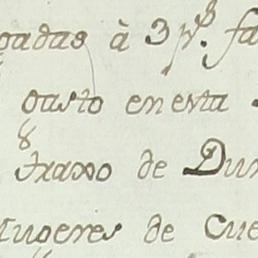 gadas à 3 ps. fa
gasto en esta
traxo de Dur
Mugeres de Cue